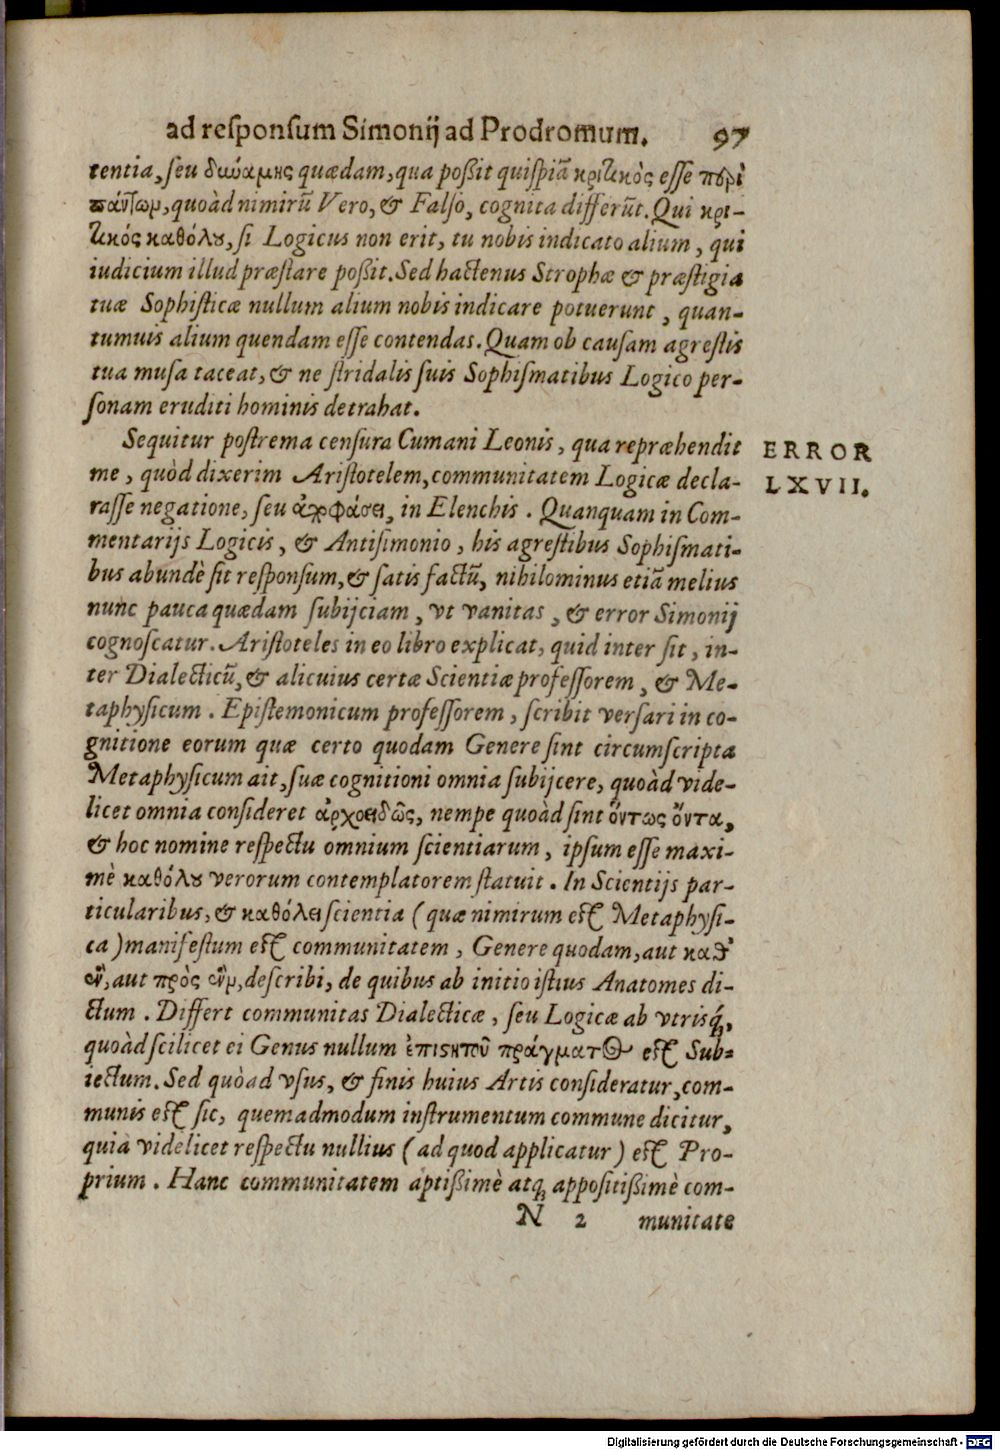 ad reſponſum Simonij ad Prodromum. 97
tentia, ſeu δύναμης quædam, qua poßit quiſpiã κριτικὸς eſſe πϖρὶ
πάντωμ, quoàd nimirũ Vero, & Falſo, cognita differũt. Qui κρι-
τικός καθόλου, ſi Logicus non erit, tu nobis indicato alium, qui
iudicium illud præſtare poßit. Sed hactenus Strophæ & præſtigia
tuæ Sophiſticæ nullum alium nobis indicare potuerunt, quan-
tumuis alium quendam eſſe contendas. Quam ob cauſam agreſtis
tua muſa taceat, & ne ſtridalis ſuis Sophiſmatibus Logico per-
ſonam eruditi hominis detrahat.
Sequitur poſtrema cenſura Cumani Leonis, qua repræhendit
me, quòd dixerim Ariſtotelem, communitatem Logicæ decla-
raſſe negatione, ſeu ἀποφάσει, in Elenchis. Quanquam in Com-
mentarijs Logicis, & Antiſimonio, his agreſtibus Sophiſmati-
bus abundè ſit reſponſum, & ſatis factũ, nihilominus etiã melius
nunc pauca quædam ſubijciam, vt vanitas, & error Simonij
cognoſcatur. Ariſtoteles in eo libro explicat, quid inter ſit, in-
ter Dialecticũ, & alicuius certæ Scientiæ profeſſorem, & Me-
taphyſicum. Epiſtemonicum profeſſorem, ſcribit verſari in co-
gnitione eorum quæ certo quodam Genere ſint circumſcripta
Metaphyſicum ait, ſuæ cognitioni omnia ſubijcere, quoàd vide-
licet omnia conſideret ἀρχοειδῶς, nempe quoàd ſint ὄντως ὄντα,
& hoc nomine reſpectu omnium ſcientiarum, ipſum eſſe maxi-
mè καθόλου verorum contemplatorem ſtatuit. In Scientijs par-
ticularibus, & καθόλει ſcientia (quæ nimirum eſt Metaphyſi-
ca) manifeſtum eſt communitatem, Genere quodam, aut καθ'
ἓν, aut πρὸς ἓμ, deſcribi, de quibus ab initio iſtius Anatomes di-
ctum. Differt communitas Dialecticæ, ſeu Logicæ ab vtrisq;,
quoàd ſcilicet ei Genus nullum ἐπιστητοῦ πράγματος eſt Sub-
iectum. Sed quòad vſus, & finis huius Artis conſideratur, com-
munis eſt ſic, quemadmodum inſtrumentum commune dicitur,
quia videlicet reſpectu nullius (ad quod applicatur) eſt Pro-
prium. Hanc communitatem aptißimè atq; appoſitißimè com-
N 2 munitate
ERROR
LXVII.
Digitalisierung gefördert durch die Deutsche Forschungsgemeinschaft - DFG